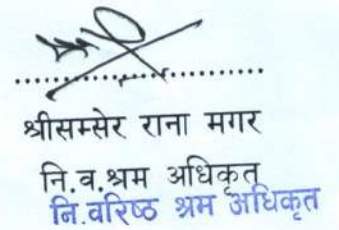 श्रीसम्सेर राना मगर
नि.व.श्रम अधिकृत
नि.वरिष्ठ श्रम अधिकृत